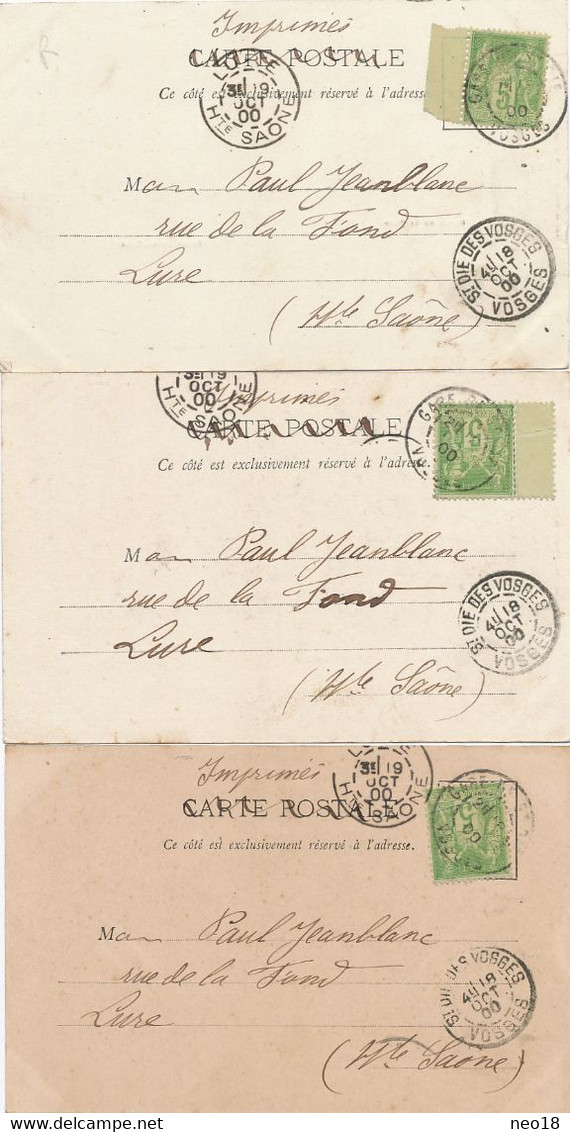 Imprimés
CARTE POSTALE
Ce côté est exclusivement réservé à l'adresse
LURE
3E 19
OCT
00
HTE SAÔNE
5
GARE
00
VOSGES
Mon Paul Jeanblanc
rue de la Fond
Lure
(Hte Saône)
ST DIE DES VOSGES
4E 18
OCT
00
VOSGES
Imprimés
3E 19
OCT
00
HTE SAONE
CARTE POSTALE
Ce côté est exclusivement réservé à l'adresse
GARE
5
00
Mon Paul Jeanblanc
rue de la Fond
Lure
(Hte Saône)
ST DIE DES VOSGES
4E 18
OCT
00
VOSGES
Imprimés
3E 19
OCT
00
HTE SAONE
CARTE POSTALE
Ce côté est exclusivement réservé à l'adresse.
GARE
5
00
Mon Paul Jeanblanc
rue de la Fond
Lure
(Hte Saone)
ST DIE DES VOSGES
4E 18
OCT
00
VOSGES
delcampe.net
neo18